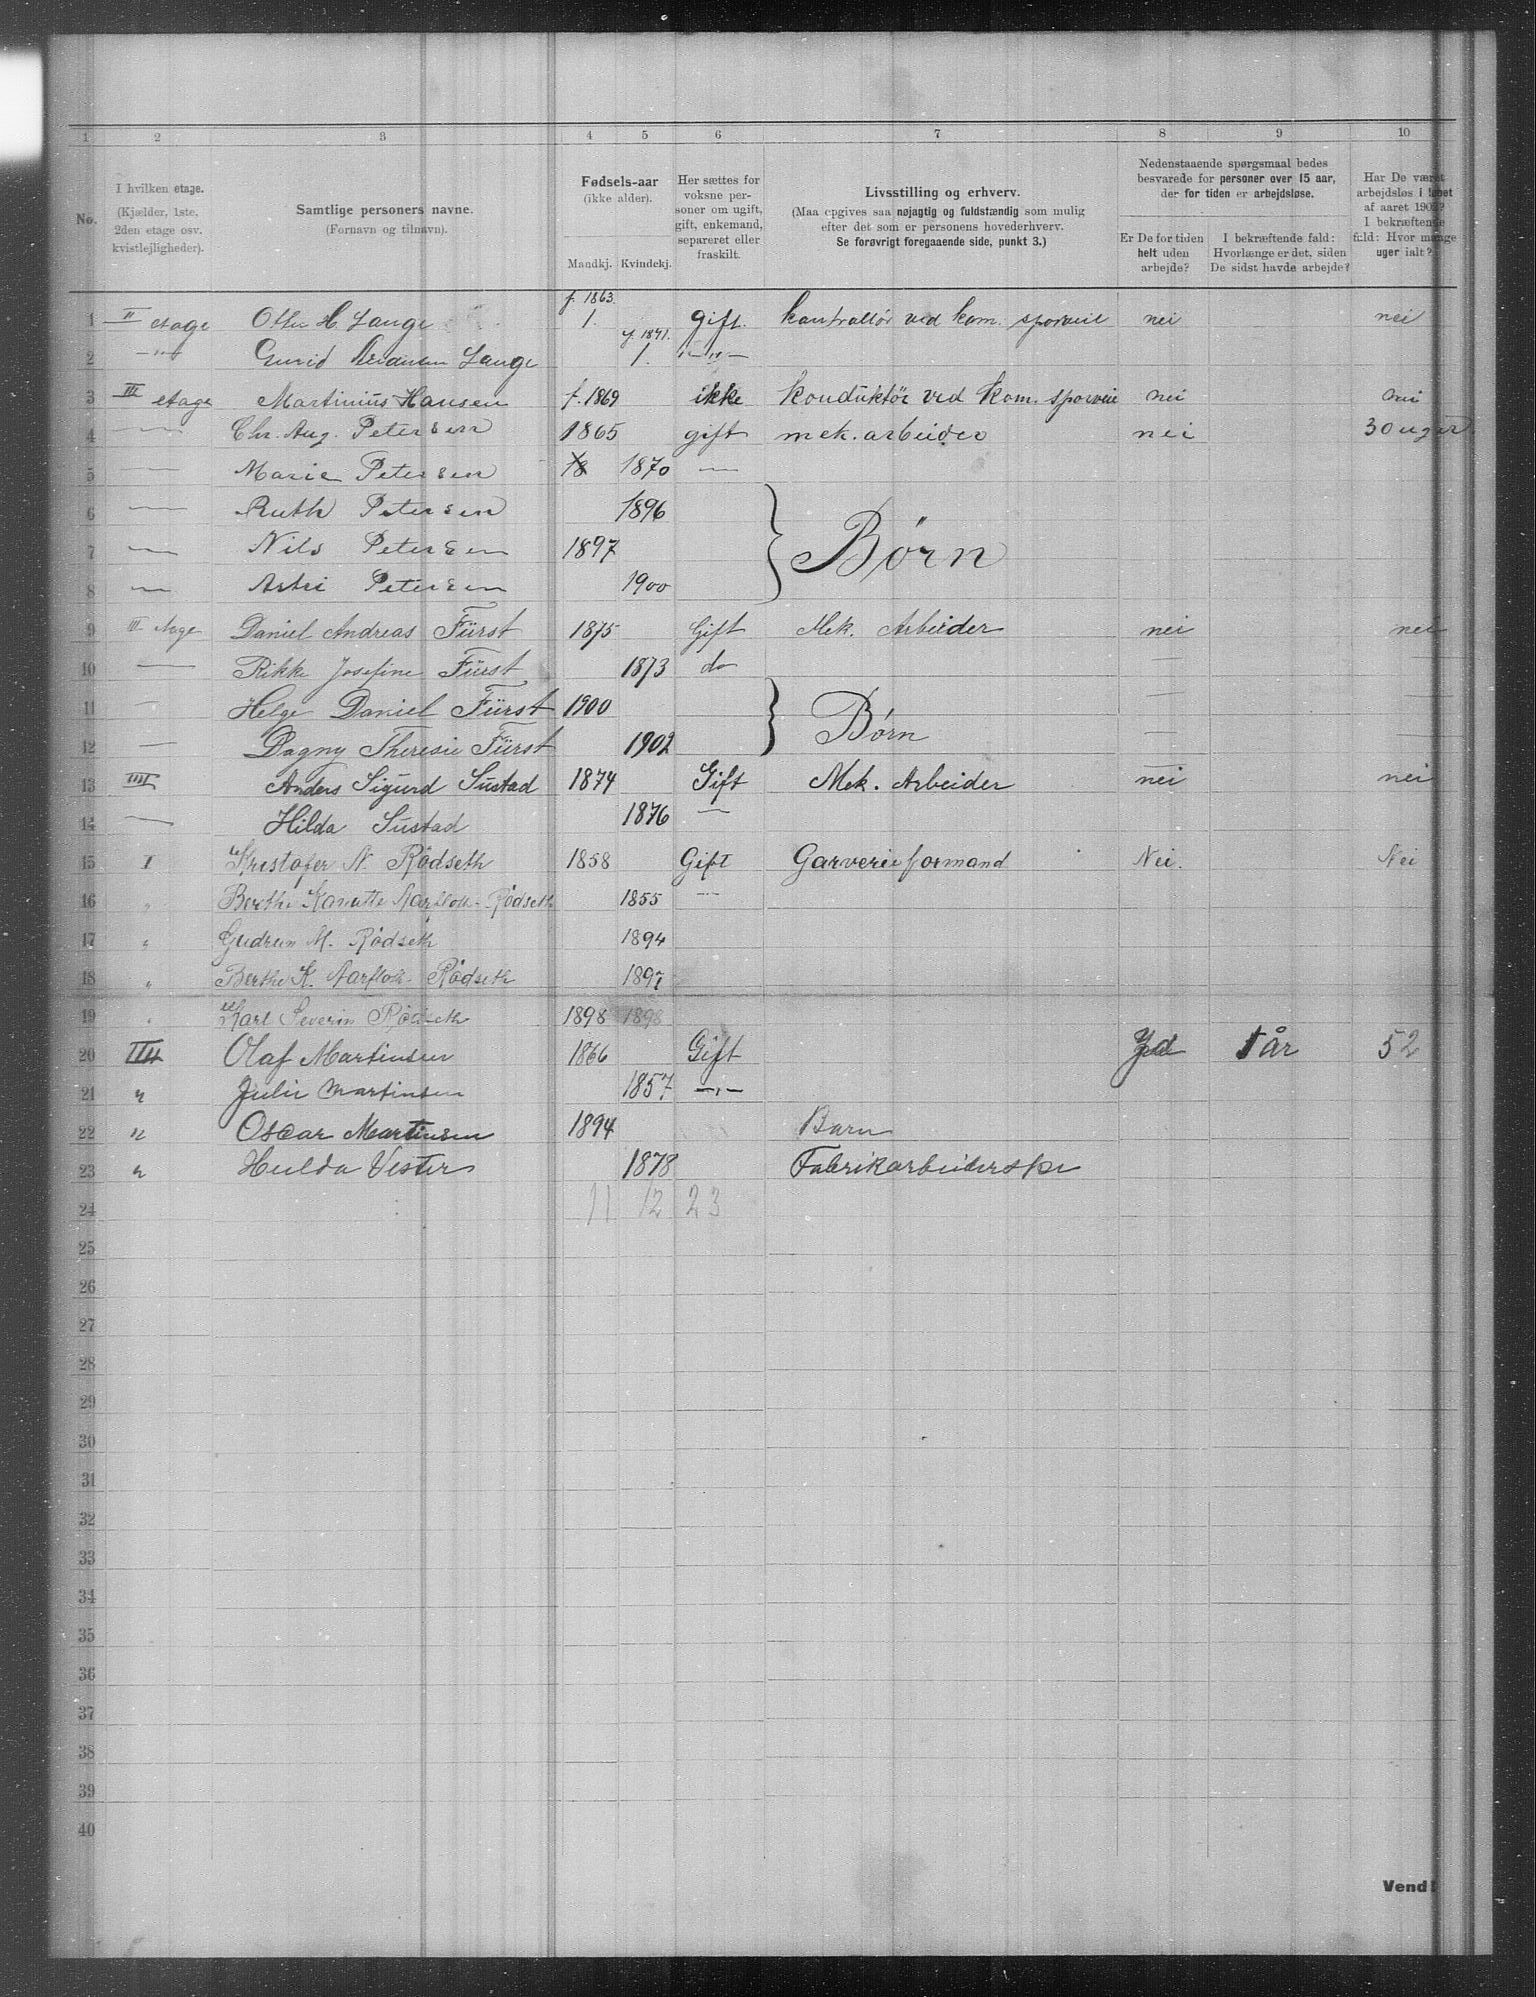 1 2 3 4 5 6 7 8 9 10
No.
I hvilken etage.
(Kjælder, 1ste,
2den etage osv.
kvistlejligheder).
Samtlige personers navne.
(Fornavn og tilnavn).
Fødsels-aar
(ikke alder).
Mandkj. Kvindekj.
Her sættes for
voksne per-
soner om ugift,
gift, enkemand,
separeret eller
fraskilt.
Livsstilling og erhverv.
(Maa opgives saa nøjagtig og fuldstændig som mulig
efter det som er personens hovederhverv.
Se forøvrigt foregaaende side, punkt 3.)
Nedenstaaende spørgsmaal bedes
besvarede for personer over 15 aar,
der for tiden er arbejdsløse.
Er De for tiden
helt uden
arbejde?
I bekræftende fald:
Hvorlænge er det, siden
De sidst havde arbejde?
Har De været
arbejdsløs i løbet
af aaret 1902?
I bekræftende
fald: Hvor mange
uger ialt?
1 II etage Otto H. Lange f. 1863. 1. gift. kontrollör ved kom. sporveie nei nei
2 —"— Gurid Lange f. 1871. 1. —"—
3 III etage Martinius Hansen f. 1869 ikke Konduktör ved Kom. sporveie nei nei
4 — Chr. Aug. Petersen 1865 gift mek. arbeider nei 30 uger
5 — Marie Petersen 18 1870 —
6 — Ruth Petersen 1896
7 — Nils Petersen 1897 } Børn
8 — Astri Petersen 1900
9 III etage Daniel Andreas Fürst 1875 Gift Mek. Arbeider nei nei
10 — Rikke Josefine Fürst 1873 do — —
11 — Helge Daniel Fürst 1900 } Børn — —
12 — Dagny Theresie Fürst 1902 — —
13 IIII Anders Sigurd Sustad 1874 Gift Mek. Arbeider nei nei
14 — Hilda Sustad 1876 —
15 I Kristofer N. Rödseth 1858 Gift Garverieformand Nei. Nei
16 " Berthe Kanutte Aarflot-Rödseth 1855 —"—
17 " Gudrun M. Rödseth 1894
18 " Berthe K. Aarflot-Rödseth 1897
19 " Karl Severin Rödseth 1898 1898
20 IIII Olaf Martinsen 1866 Gift Ja 1 år 52
21 " Julie Martinsen 1857 —"—
22 " Oscar Martinsen 1894 Barn
23 " Hulda Vester 1878 Fabrikarbeiderske
24 11 12 23
25
26
27
28
29
30
31
32
33
34
35
36
37
38
39
40
Vend!